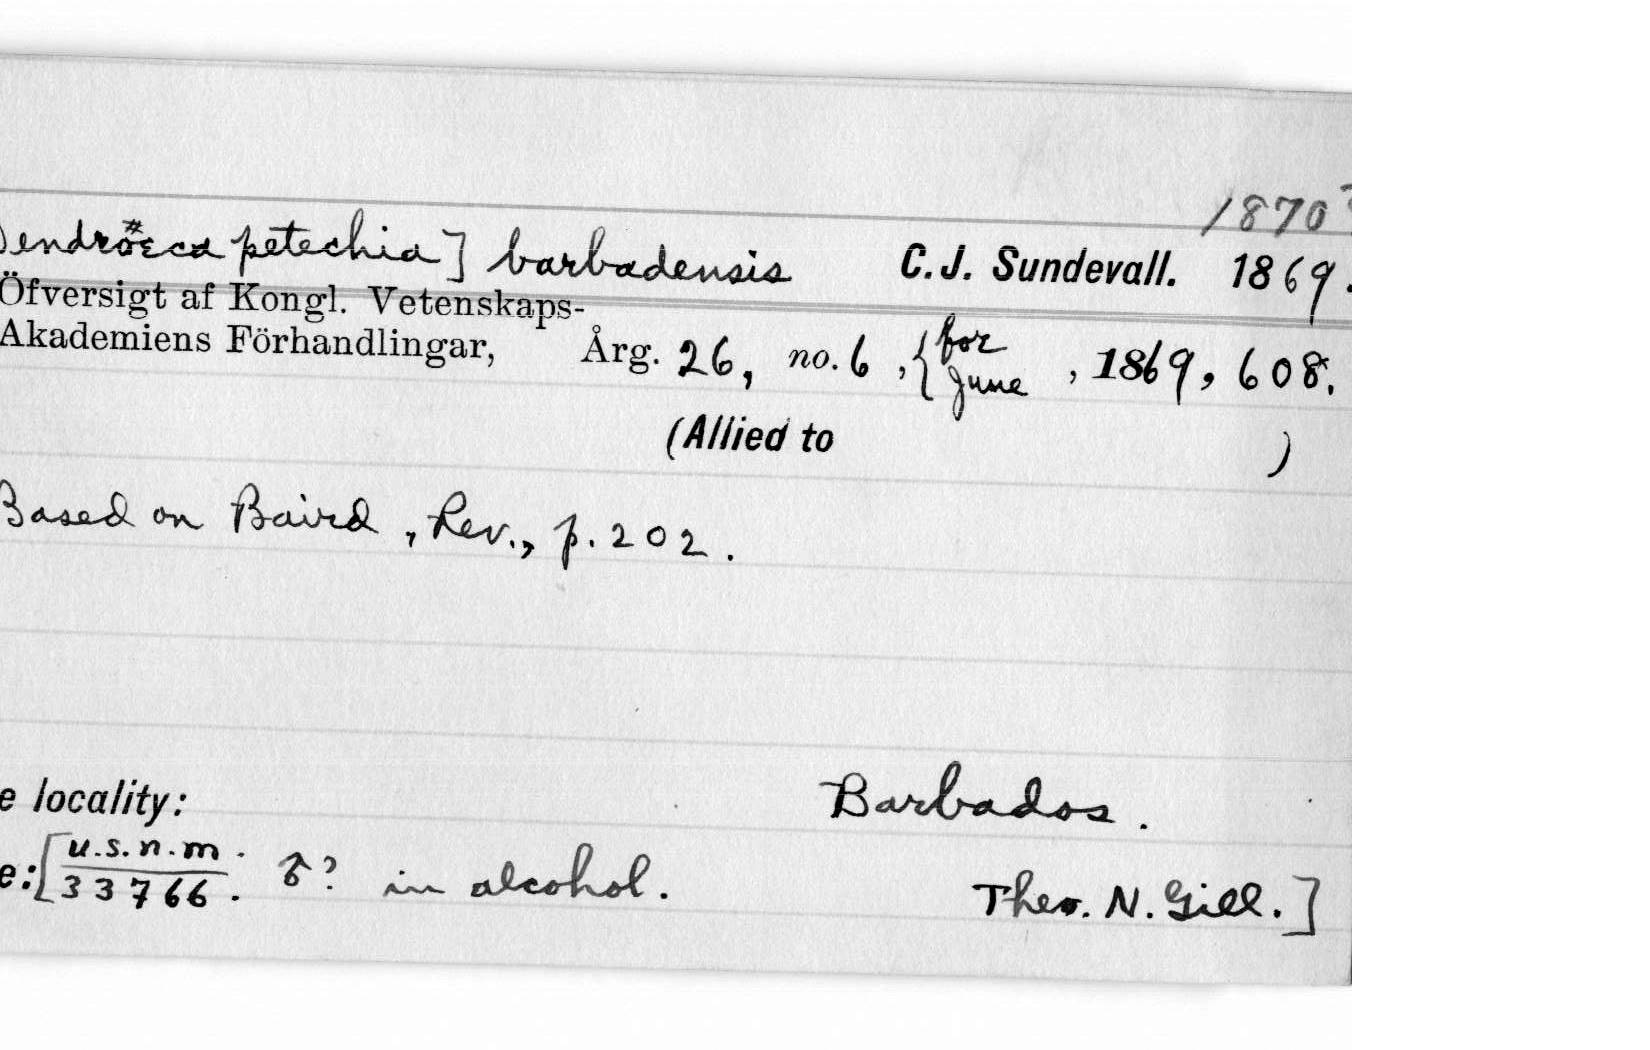 1870?
endröeca petechia] barbadensis C. J. Sundevall. 1869.
Öfversigt af Kongl. Vetenskaps-
Akademiens Förhandlingar, Årg. 26, no. 6, {for June, 1869, 608.
(Allied to )
Based on Baird, Rev., p. 202.
e locality: Barbados.
e: [U.S.N.M. 33766. ♂? in alcohol. Theo. N. Gill.]